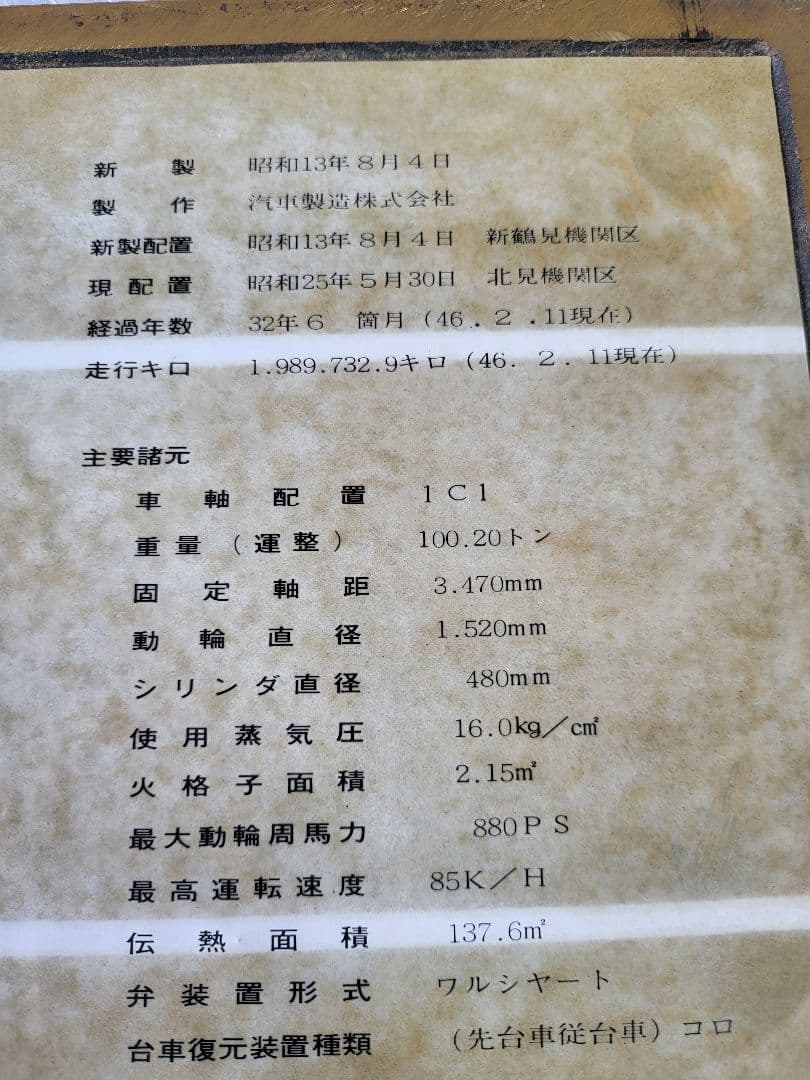 新製 昭和13年8月4日
製作 汽車製造株式会社
新製配置 昭和13年8月4日 新鶴見機関区
現配置 昭和25年5月30日 北見機関区
経過年数 32年6 箇月(46.2.11現在)
走行キロ 1.989.732.9キロ(46.2.11現在)
主要諸元
車軸配置 1C1
重量(運整) 100.20トン
固定軸距 3.470mm
動輪直径 1.520mm
シリンダ直径 480mm
使用蒸気圧 16.0kg/cm²
火格子面積 2.15m²
最大動輪周馬力 880PS
最高運転速度 85K/H
伝熱面積 137.6m²
弁装置形式 ワルシヤート
台車復元装置種類 (先台車従台車)コロ